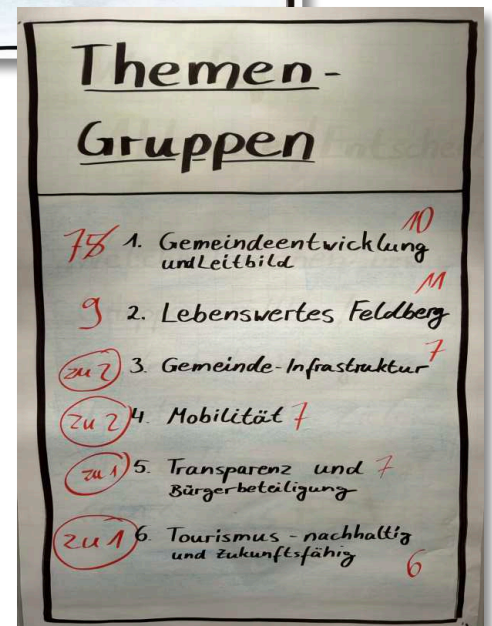 Themen-
Gruppen
10
7 1. Gemeindeentwicklung
und Leitbild
11
9 2. Lebenswertes Feldberg
zu 2 3. Gemeinde-Infrastruktur 7
zu 2 4. Mobilität 7
zu 1 5. Transparenz und 7
Bürgerbeteiligung
zu 1 6. Tourismus - nachhaltig
und zukunftsfähig 6